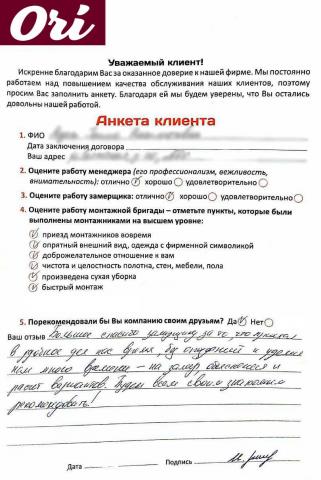 Ori
Уважаемый клиент!
Искренне благодарим Вас за оказанное доверие к нашей фирме. Мы постоянно
работаем над повышением качества обслуживания наших клиентов, поэтому
просим Вас заполнить анкету. Благодаря ей мы будем уверены, что Вы остались
довольны нашей работой.
Анкета клиента
1. ФИО
Дата заключения договора
Ваш адрес
2. Оцените работу менеджера (его профессионализм, вежливость,
внимательность): отлично хорошо удовлетворительно
3. Оцените работу замерщика: отлично хорошо удовлетворительно
4. Оцените работу монтажной бригады – отметьте пункты, которые были
выполнены монтажниками на высшем уровне:
приезд монтажников вовремя
опрятный внешний вид, одежда с фирменной символикой
доброжелательное отношение к вам
чистота и целостность полотна, стен, мебели, пола
произведена сухая уборка
быстрый монтаж
5. Порекомендовали бы Вы компанию своим друзьям? Да Нет
Ваш отзыв Большое спасибо замерщику за то, что приехал
в удобное для нас время, без опозданий и уделил
нам много времени – на замер, объяснения и
расчет вариантов. Будем всем своим знакомым
рекомендовать!
Дата Подпись